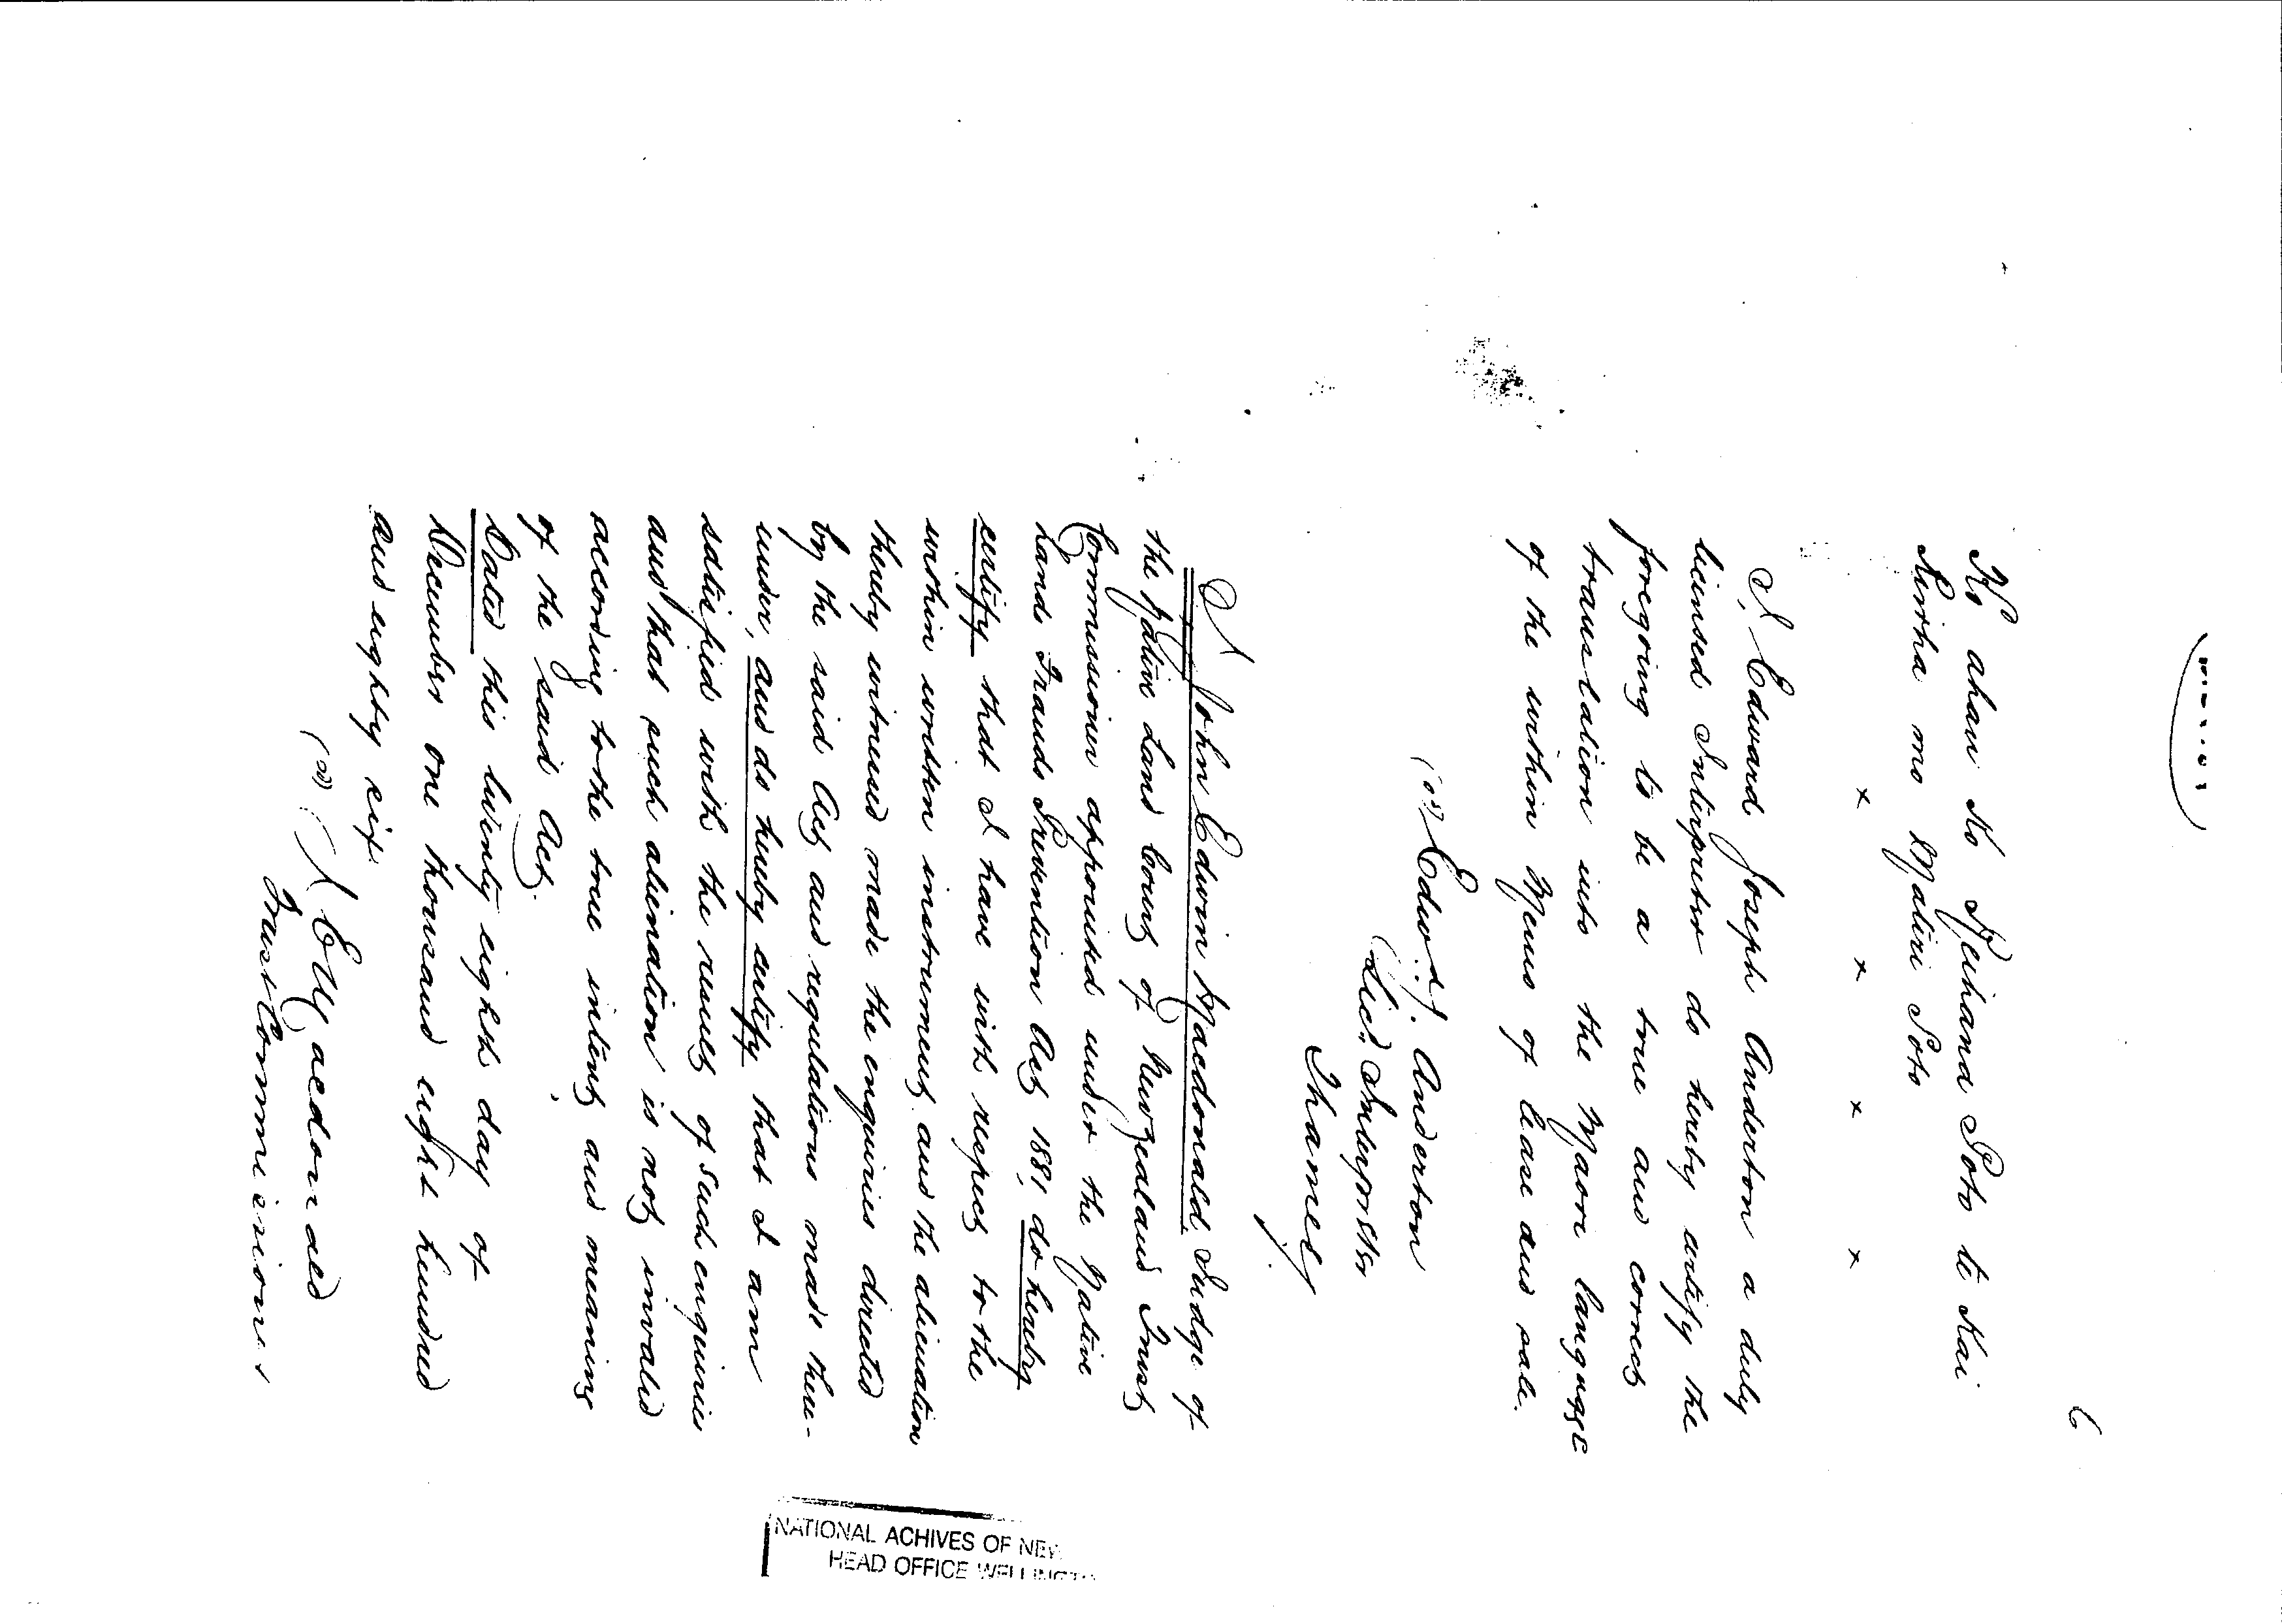 6
Ko ahau Ko Reihana Poto te Kai
Ruirha mo Matiri Poto
x x x x
I, Edward Joseph Anderton a duly
licensed Interpreter do hereby certify the
foregoing to be a true and correct
translation into the Maori language
of the within Memo of lease and sale.
Edwd J. Anderton
Licd Interpreter
Thames
I John Edwin Macdonald Judge of
the Native Land Court of New Zealand Trust
Commissioner appointed under the Native
Lands Frauds Prevention Act 1881 do hereby
certify that I have with respect to the
within written instrument and the alienation
thereby witnessed made the enquiries directed
by the said Act and regulations made there-
under, and do hereby certify that I am
satisfied with the result of such enquiries
and that such alienation is not invalid
according to the true intent and meaning
of the said Act.
Dated this twenty eighth day of
December one thousand eight hundred
and eighty six
J E Macdonald
Trust Commissioner
NATIONAL ACHIVES OF NEW
HEAD OFFICE WELLINGTO